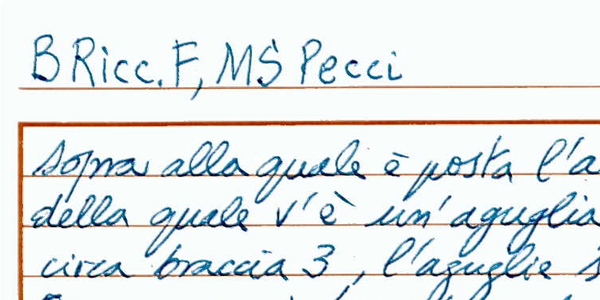 B Ricc. F, MS Pecci
sopra alla quale è posta l'a
della quale v'è un'aguglia
circa braccia 3, l'aguglie s